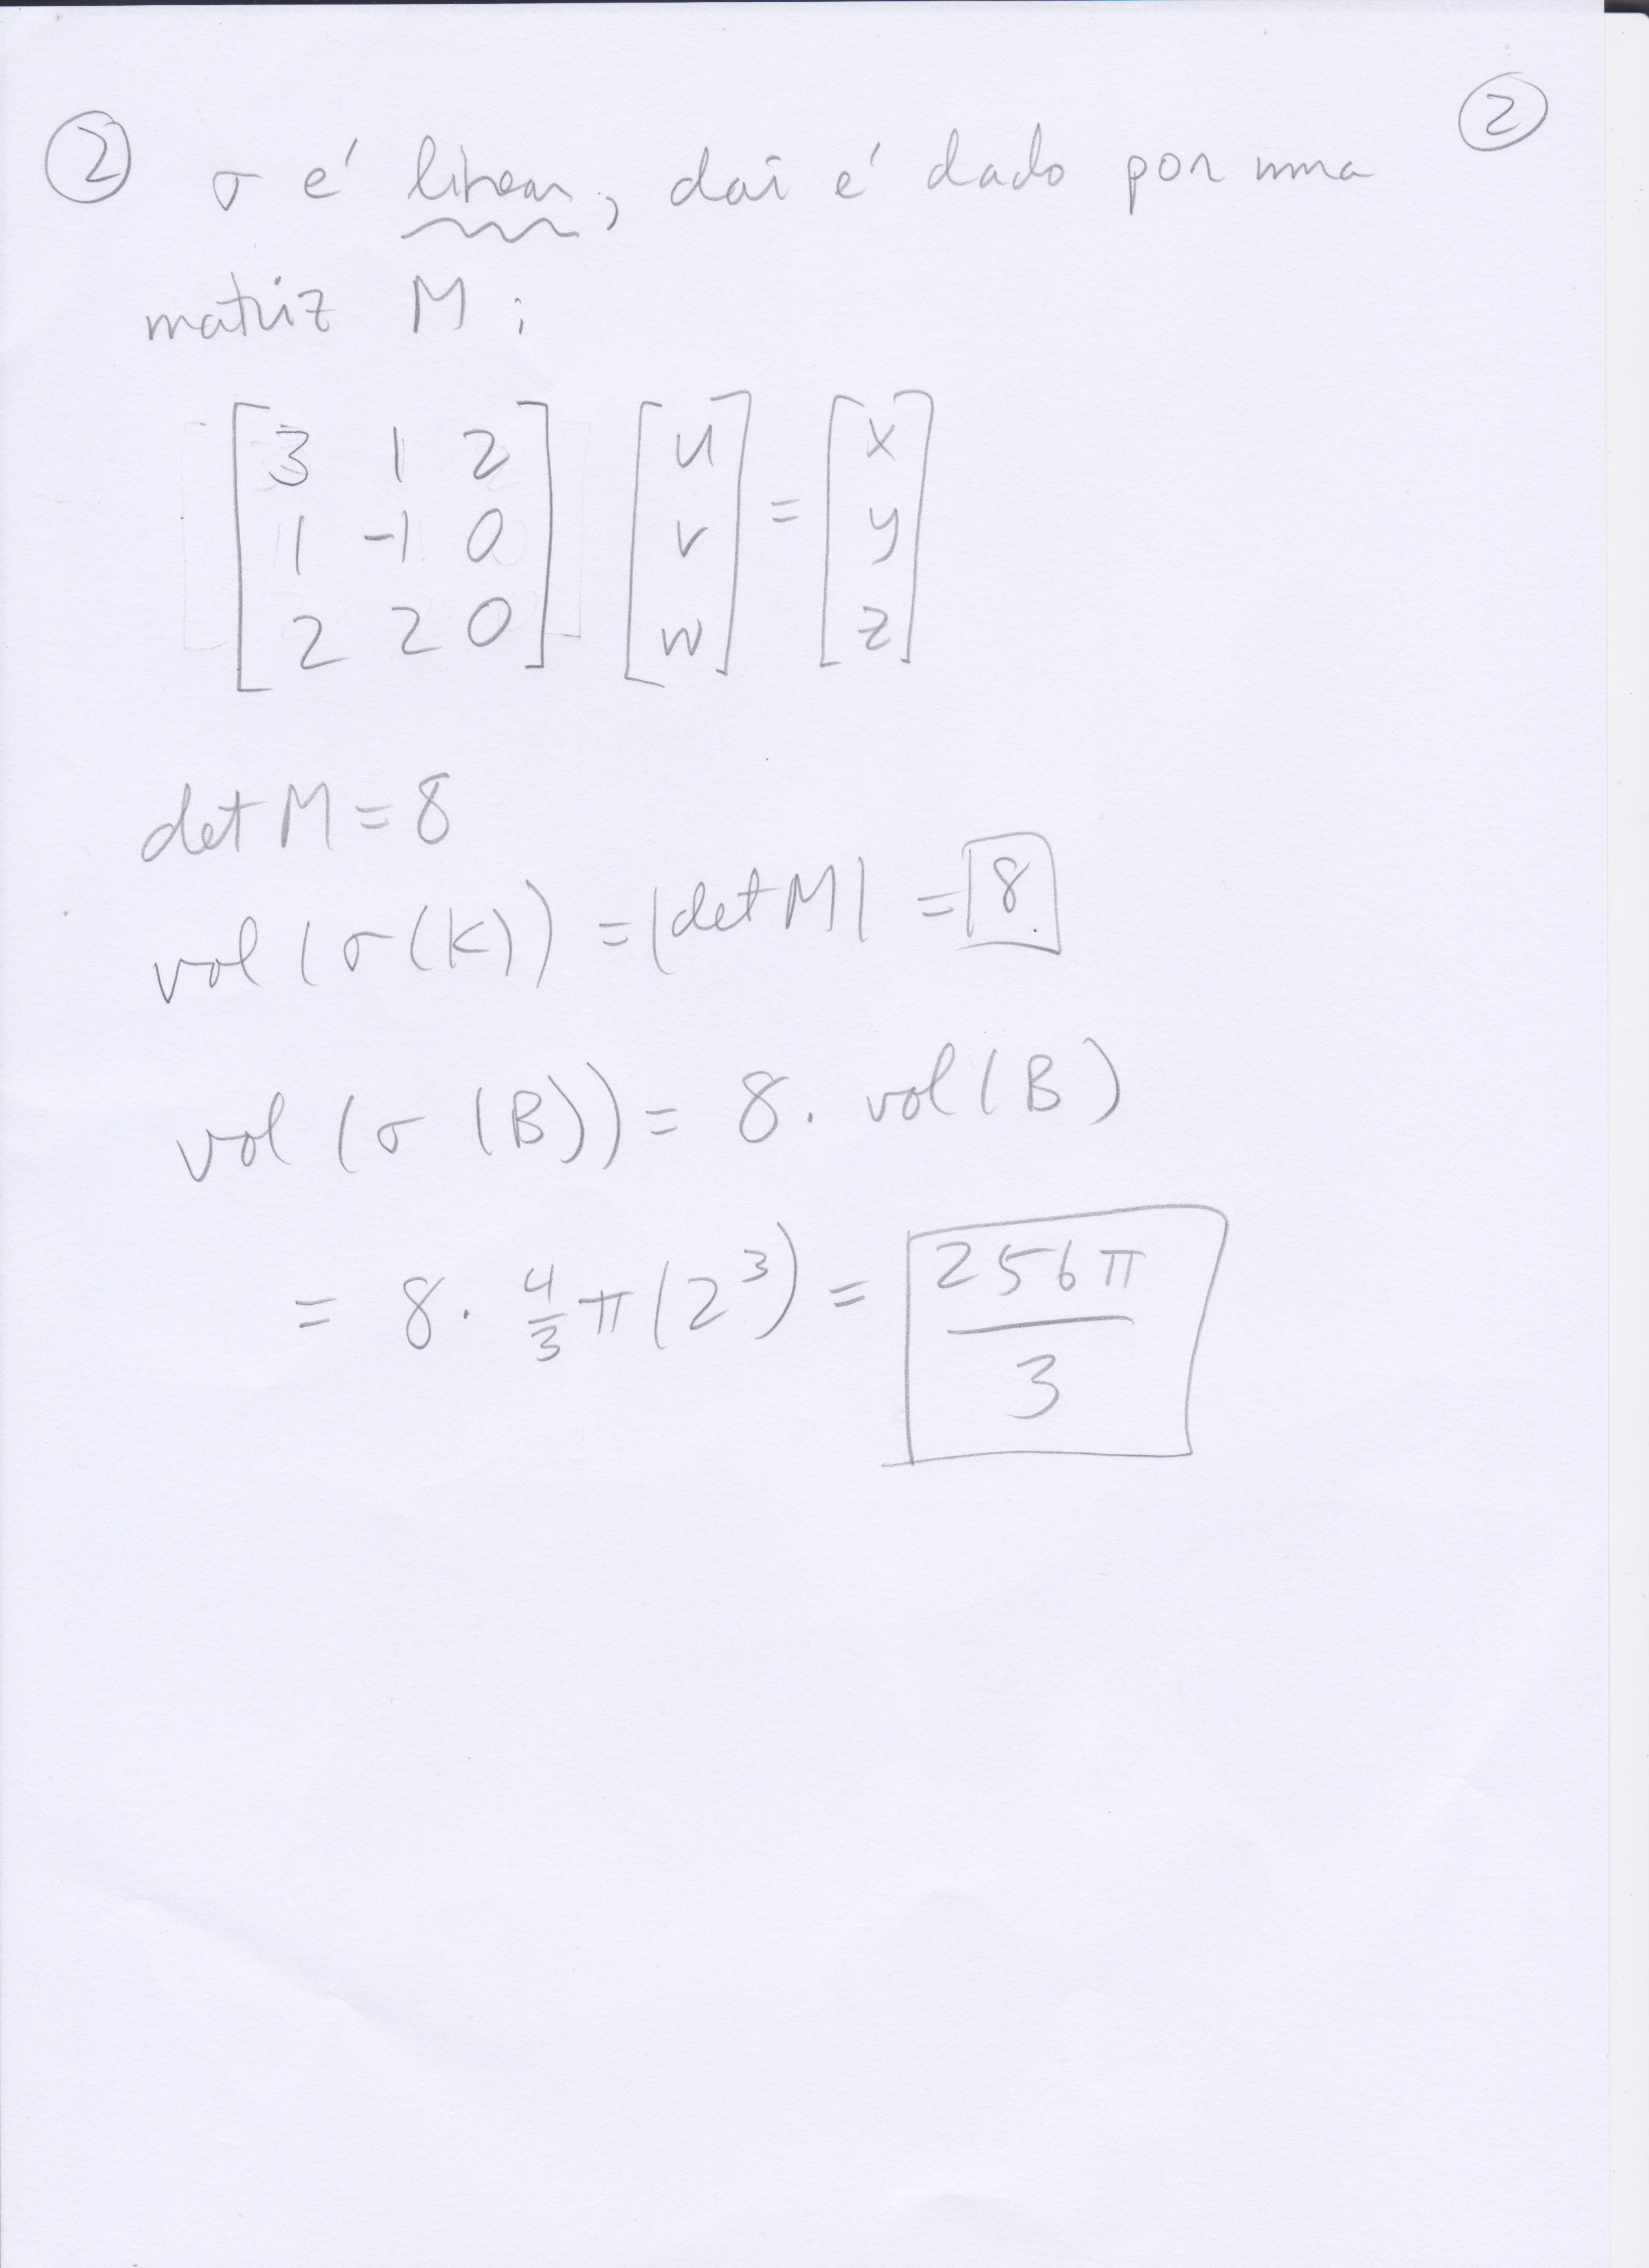 ② σ é linear, daí é dado por uma ②
matriz M:
[3 1 2] [u] = [x]
[1 -1 0] [v] [y]
[2 2 0] [w] [z]
det M = 8
vol (σ(K)) = |det M| = 8.
vol (σ (B)) = 8. vol (B)
= 8. 4/3 π (2³) = 256π/3